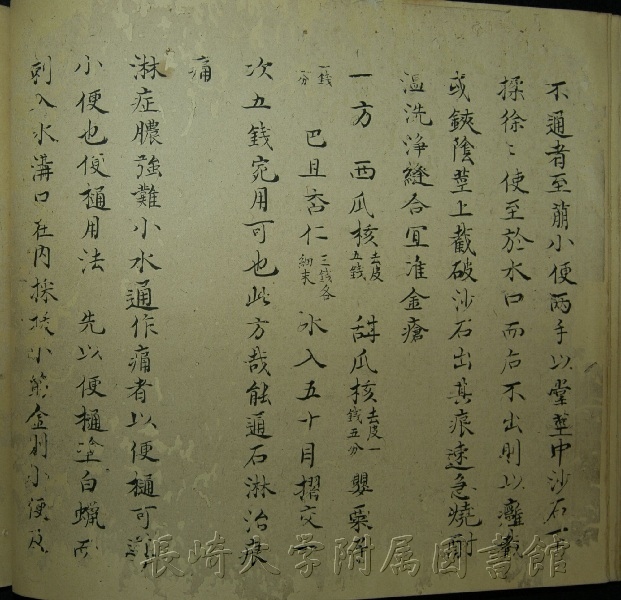 不通者至前小便両手以掌莖中沙石
揉徐〻使至於水口而后不出則以
或鋏陰莖上截破沙石出其痕速急燒酎
温洗淨縫合宜准金瘡
一方 西瓜核去皮五錢 甜瓜核去皮一錢五分 嬰粟
一錢一分 巴且杏仁三錢各細末 氷入五十目摺交
次五錢宛用可也此方哉能通石淋治
痛
淋症膿強難小水通作痛者以便樋可
小便也便樋用法 先以便樋塗白蝋而
刺入水溝口在内 小 金則小便
長崎大学附属図書館